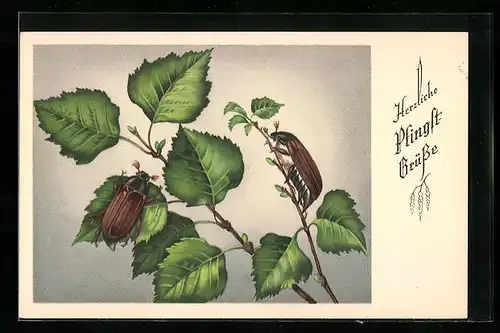 Herzliche
Pfingst
Grüße